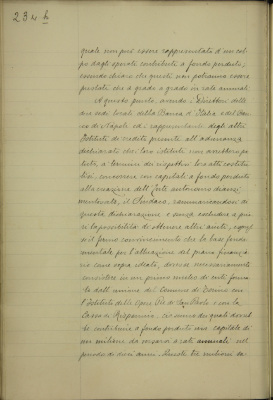 234 b
quale non può essere rappresentata d'un col-
po dagli sperati contributi a fondo perduto,
essendo chiaro che questi non potranno essere
prestati che a grado a grado in rate annuali
A questo punto, avendo i Direttori delle
due sedi locali della Banca d'Italia e del Ban-
co di Napoli ed i rappresentanti degli altri
Istituti di credito presenti all'adunanza
dichiarato che i loro istituti non avrebbero po-
tuto, a termini dei rispettivi loro atti costitu-
tivi, concorrere con capitali a fondo perduto
alla creazione dell'Ente autonomo dianzi
mentovato, il Sindaco, rammaricandosi di
questa dichiarazione e senza escludere a pri-
ori la possibilità di ottenere altri aiuti, espri-
me il fermo convincimento che la base fonda-
mentale per l'attuazione del piano finanzia-
rio come sopra ideato, dovesse necessariamente
consistere in un primo nucleo di enti forma-
to dall'unione del Comune di Torino con
l'Istituto delle Opere Pie di San Paolo e con la
Cassa di Risparmio, ciascuno dei quali dovreb-
be contribuire a fondo perduto un capitale di
un milione da versarsi a rate annuali nel
periodo di dieci anni. Questi tre milioni da